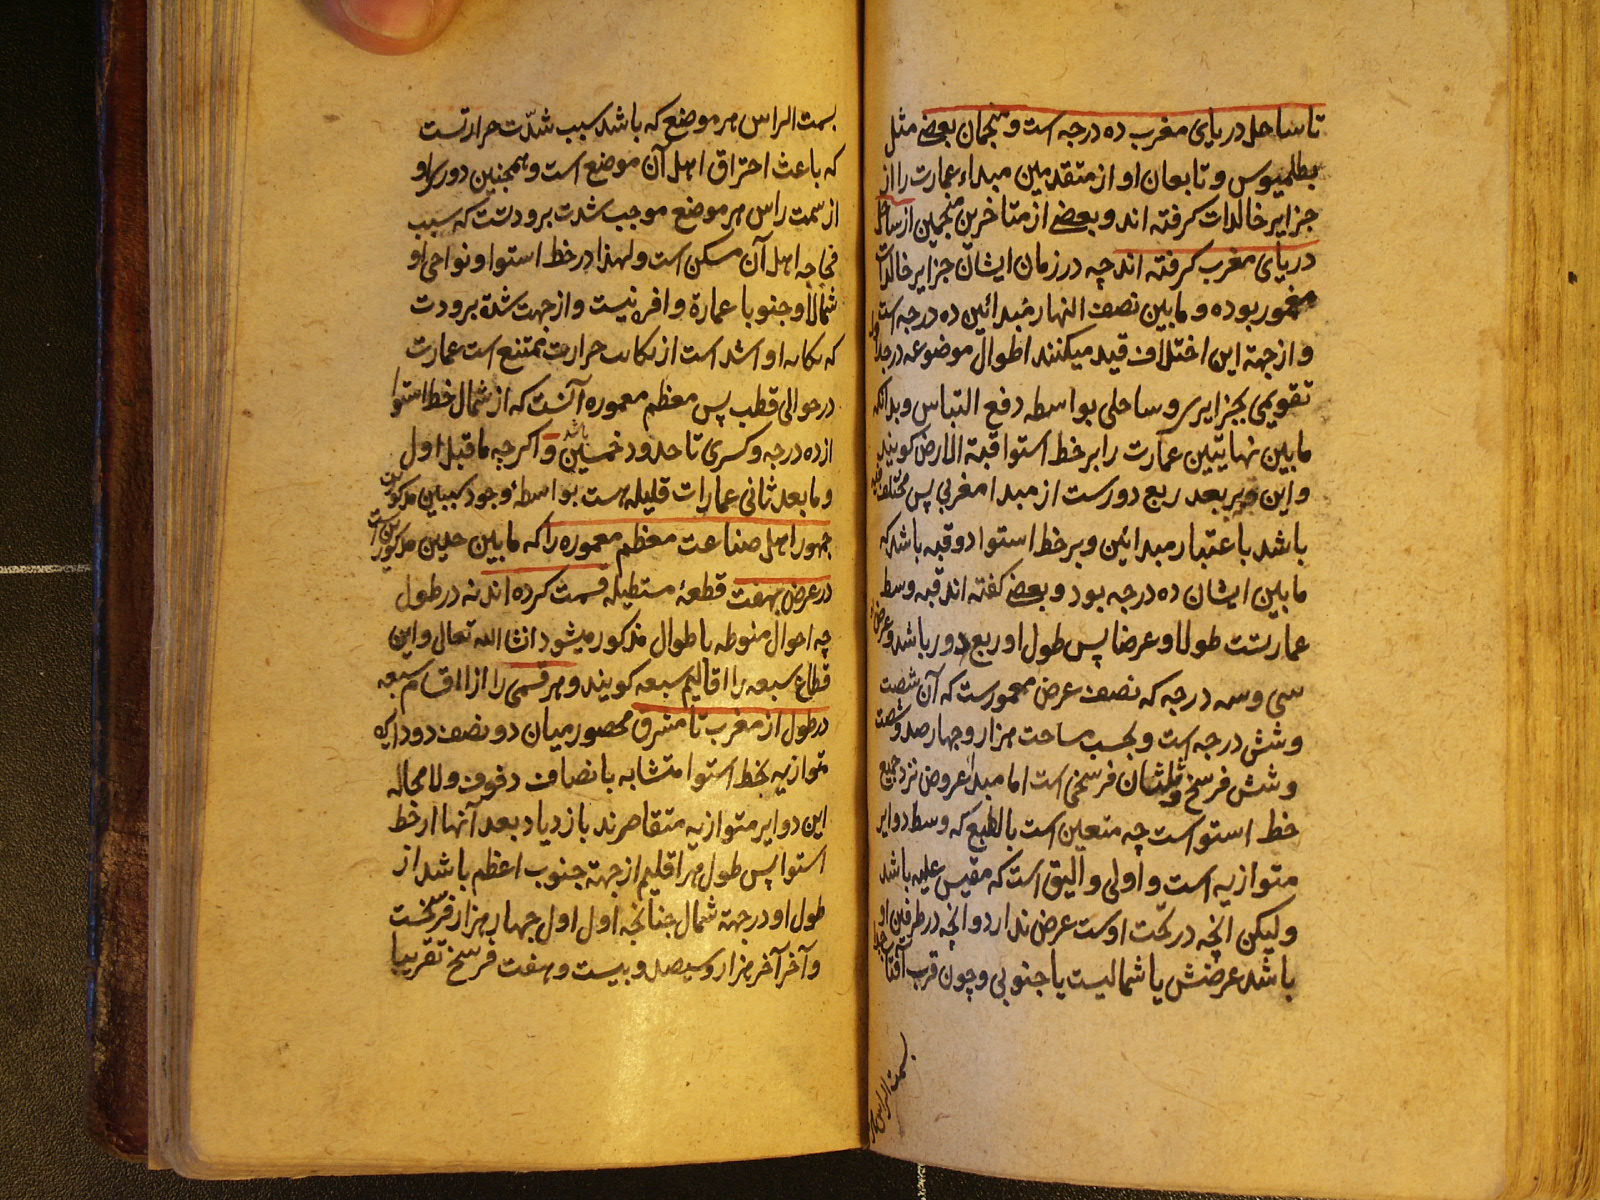 تا ساحل دریای مغرب ده درجه است و منجمان بعضے مثل
بطلمیوس و تابعان او از متقدمین مبداء عمارت را از
جزایر خالدات کرفته اند و بعضے از متاخرین منجمین از ساحل
دریای مغرب کرفته اند چه در زمان ایشان جزایر خالدات
مغمور بوده و مابین نصف النهار مبدائین ده درجه است
و از جهة این اختلاف قید میکنند اطوال موضوعه در جداول
تقویمی بجزایری و ساحلی بواسطه دفع التباس و بدانکه
مابین نهایتین عمارت را بر خط استوا قبة الارض کویند
و این بر بعد ربع دورست از مبدا مغربی پس مختلف
باشد باعتبار مبدائین و بر خط استوا دو قبه باشد که
مابین ایشان ده درجه بود و بعضے کفته اند قبه وسط
عمارتست طولا و عرضا پس طول او ربع دور باشد و عرض
سی و سه درجه که نصف عرض معمورست که آن شصت
و شش درجه است و بحسب مساحت هزار و چهار صد و شصت
و شش فرسخ و ثلثان فرسخی است اما مبداء عروض نزد جمیع
خط استواست چه متعین است بالطبع که وسط دوایر
متوازیه است و اولی و الیق است که مقیس علیه باشد
ولیکن انچه در تحت اوست عرض ندارد و انچه در طرفین او
باشد عرضش یا شمالیست یا جنوبی و چون قرب آفتاب
سمت الراس
بسمت الراس هر موضع که باشد سبب شدّت حرارتست
که باعث احتراق اهل آن موضع است و همچنین دوری او
از سمت راس هر موضع موجب شدت برودتست که سبب
فجاجه اهل آن مسکن است و لهذا در خط استوا و نواحی او
شمالا و جنوبا عمارة وافر نیست و از جهت شدة برودت
که نکایه او اشد است از نکایت حرارت ممتنع است عمارت
در حوالی قطب پس معظم معموره آنست که از شمال خط استوا
از ده درجه و کسری تا حدود خمسین باشد و اکرچه ماقبل اول
و مابعد ثانی عمارات قلیله هست بواسطهٔ وجود سببین مذکورین
جمهور اهل صناعت معظم معموره را که مابین حدین مذکورین است
در عرض بهفت قطعهٔ مستطیله قسمت کرده اند نه در طول
چه احوال منوطه باطوال مذکور میشود انشا الله تعالی و این
قطاع سبعه را اقالیم سبعه کویند و هر قسمی را از اقسام سبعه
در طول از مغرب تا مشرق محصور میان دو نصف دو دایره
متوازیه بخط استوا متشابه بانصاف دفوف و لا محاله
این دوایر متوازیه متقاصرند بازدیاد بعد آنها از خط
استوا پس طول هر اقلیم از جهة جنوب اعظم باشد از
طول او در جهة شمال چنانچه اول اول چهار هزار فرسخست
و آخر آخر هزار و سیصد و بیست و هفت فرسخ تقریبا